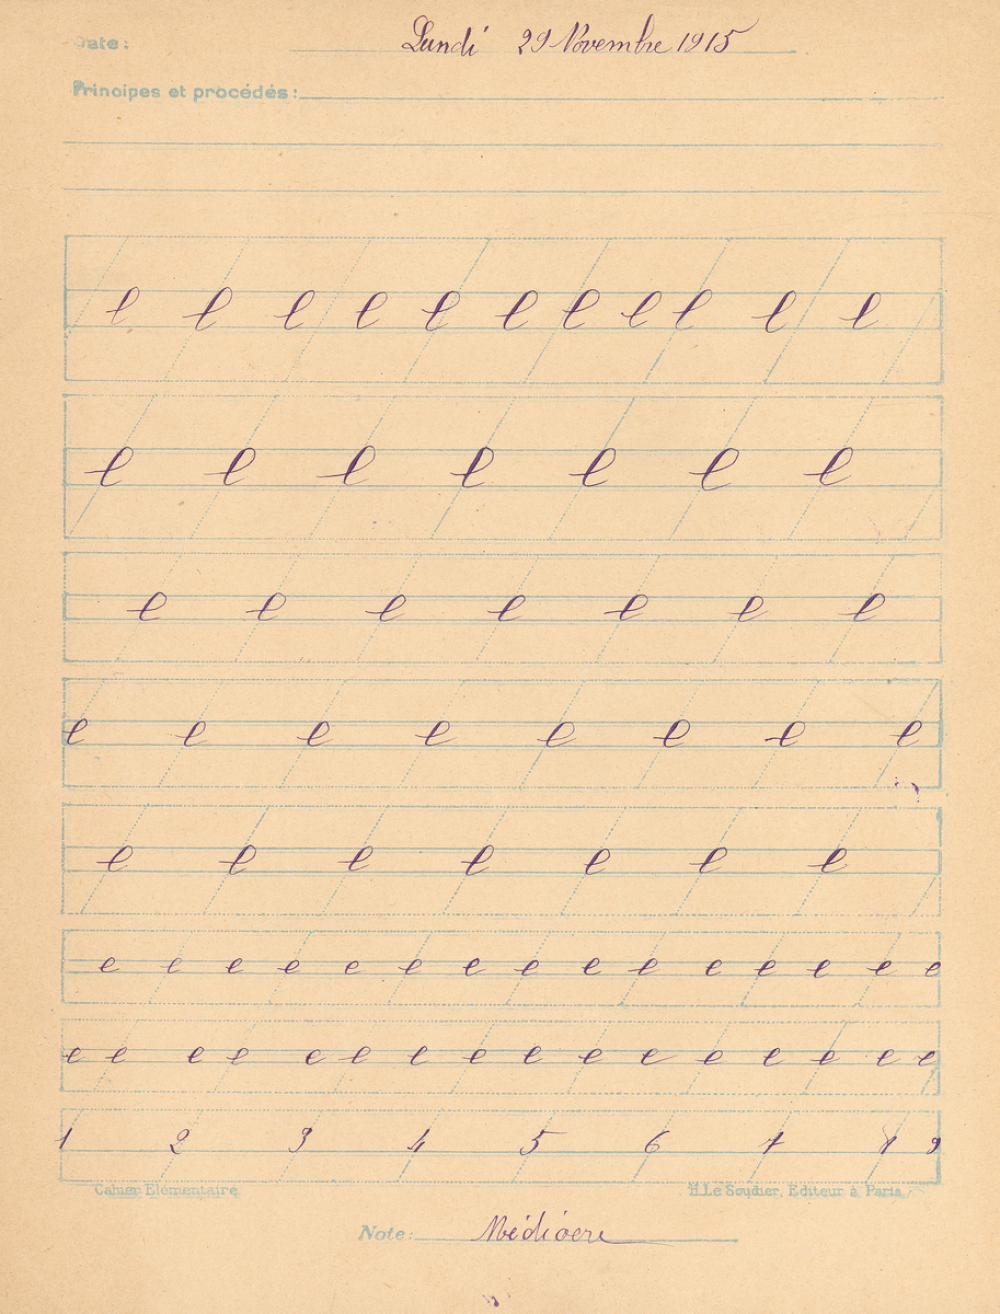 Date: Lundi 29 Novembre 1915
Principes et procédés:
e e e e e e e e e e e
e e e e e e e
e e e e e e e
e e e e e e e e
e e e e e e e
e e e e e e e e e e e e e e e
e e e e e e e e e e e e e e e e
1 2 3 4 5 6 7 8 9
Cahier Elémentaire H. Le Soudier, Editeur à Paris
Note: Médiocre